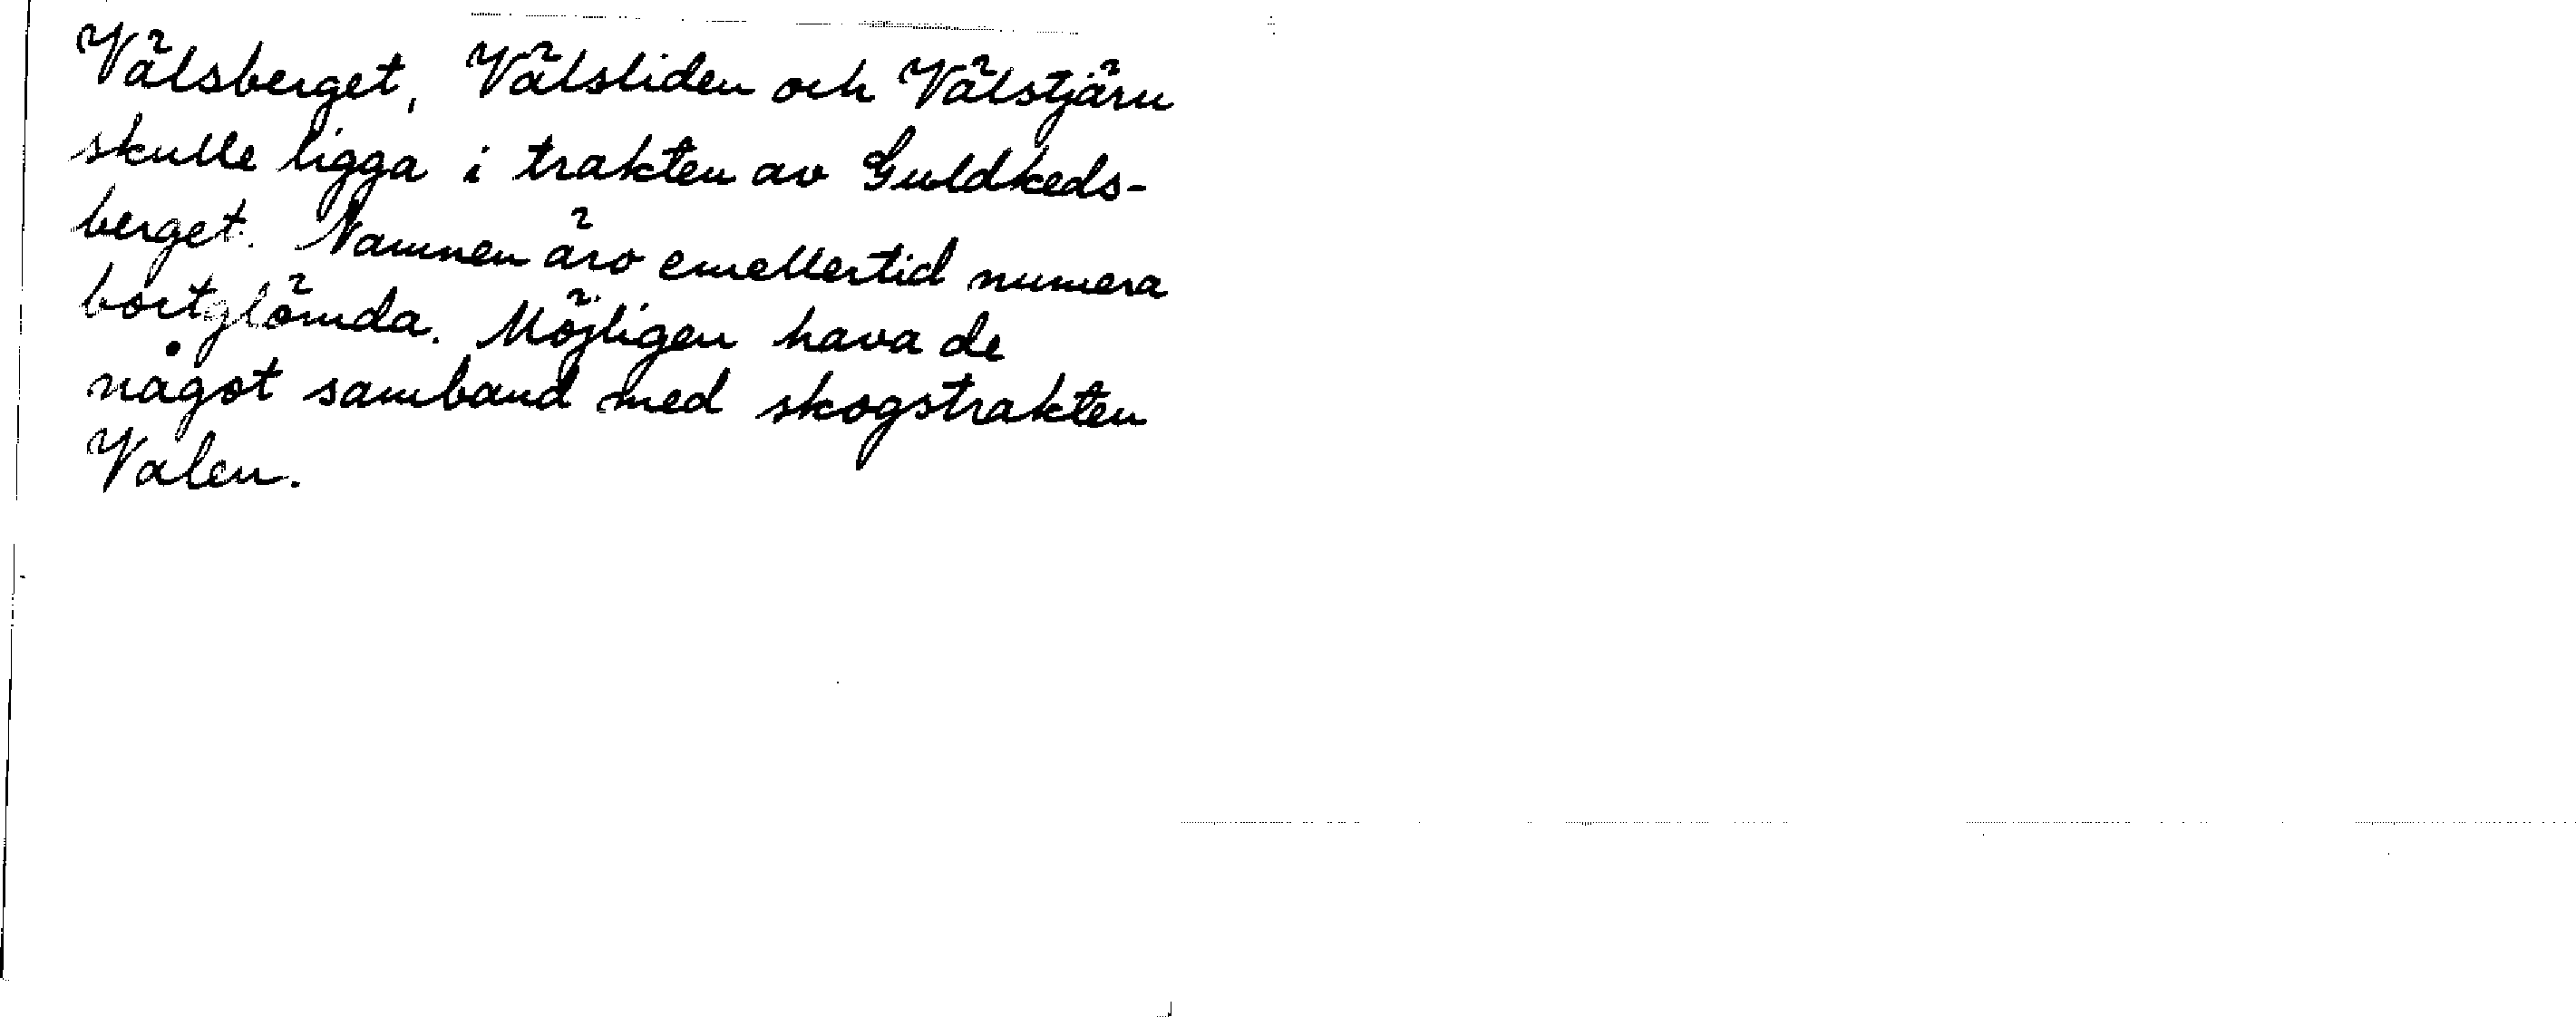 Välsberget, Välsliden och Välstjärn
skulle ligga i trakten av Guldkeds-
berget. Namnen äro emellertid numera
bortglömda. Möjligen hava de
något samband med skogstrakten
Valen.